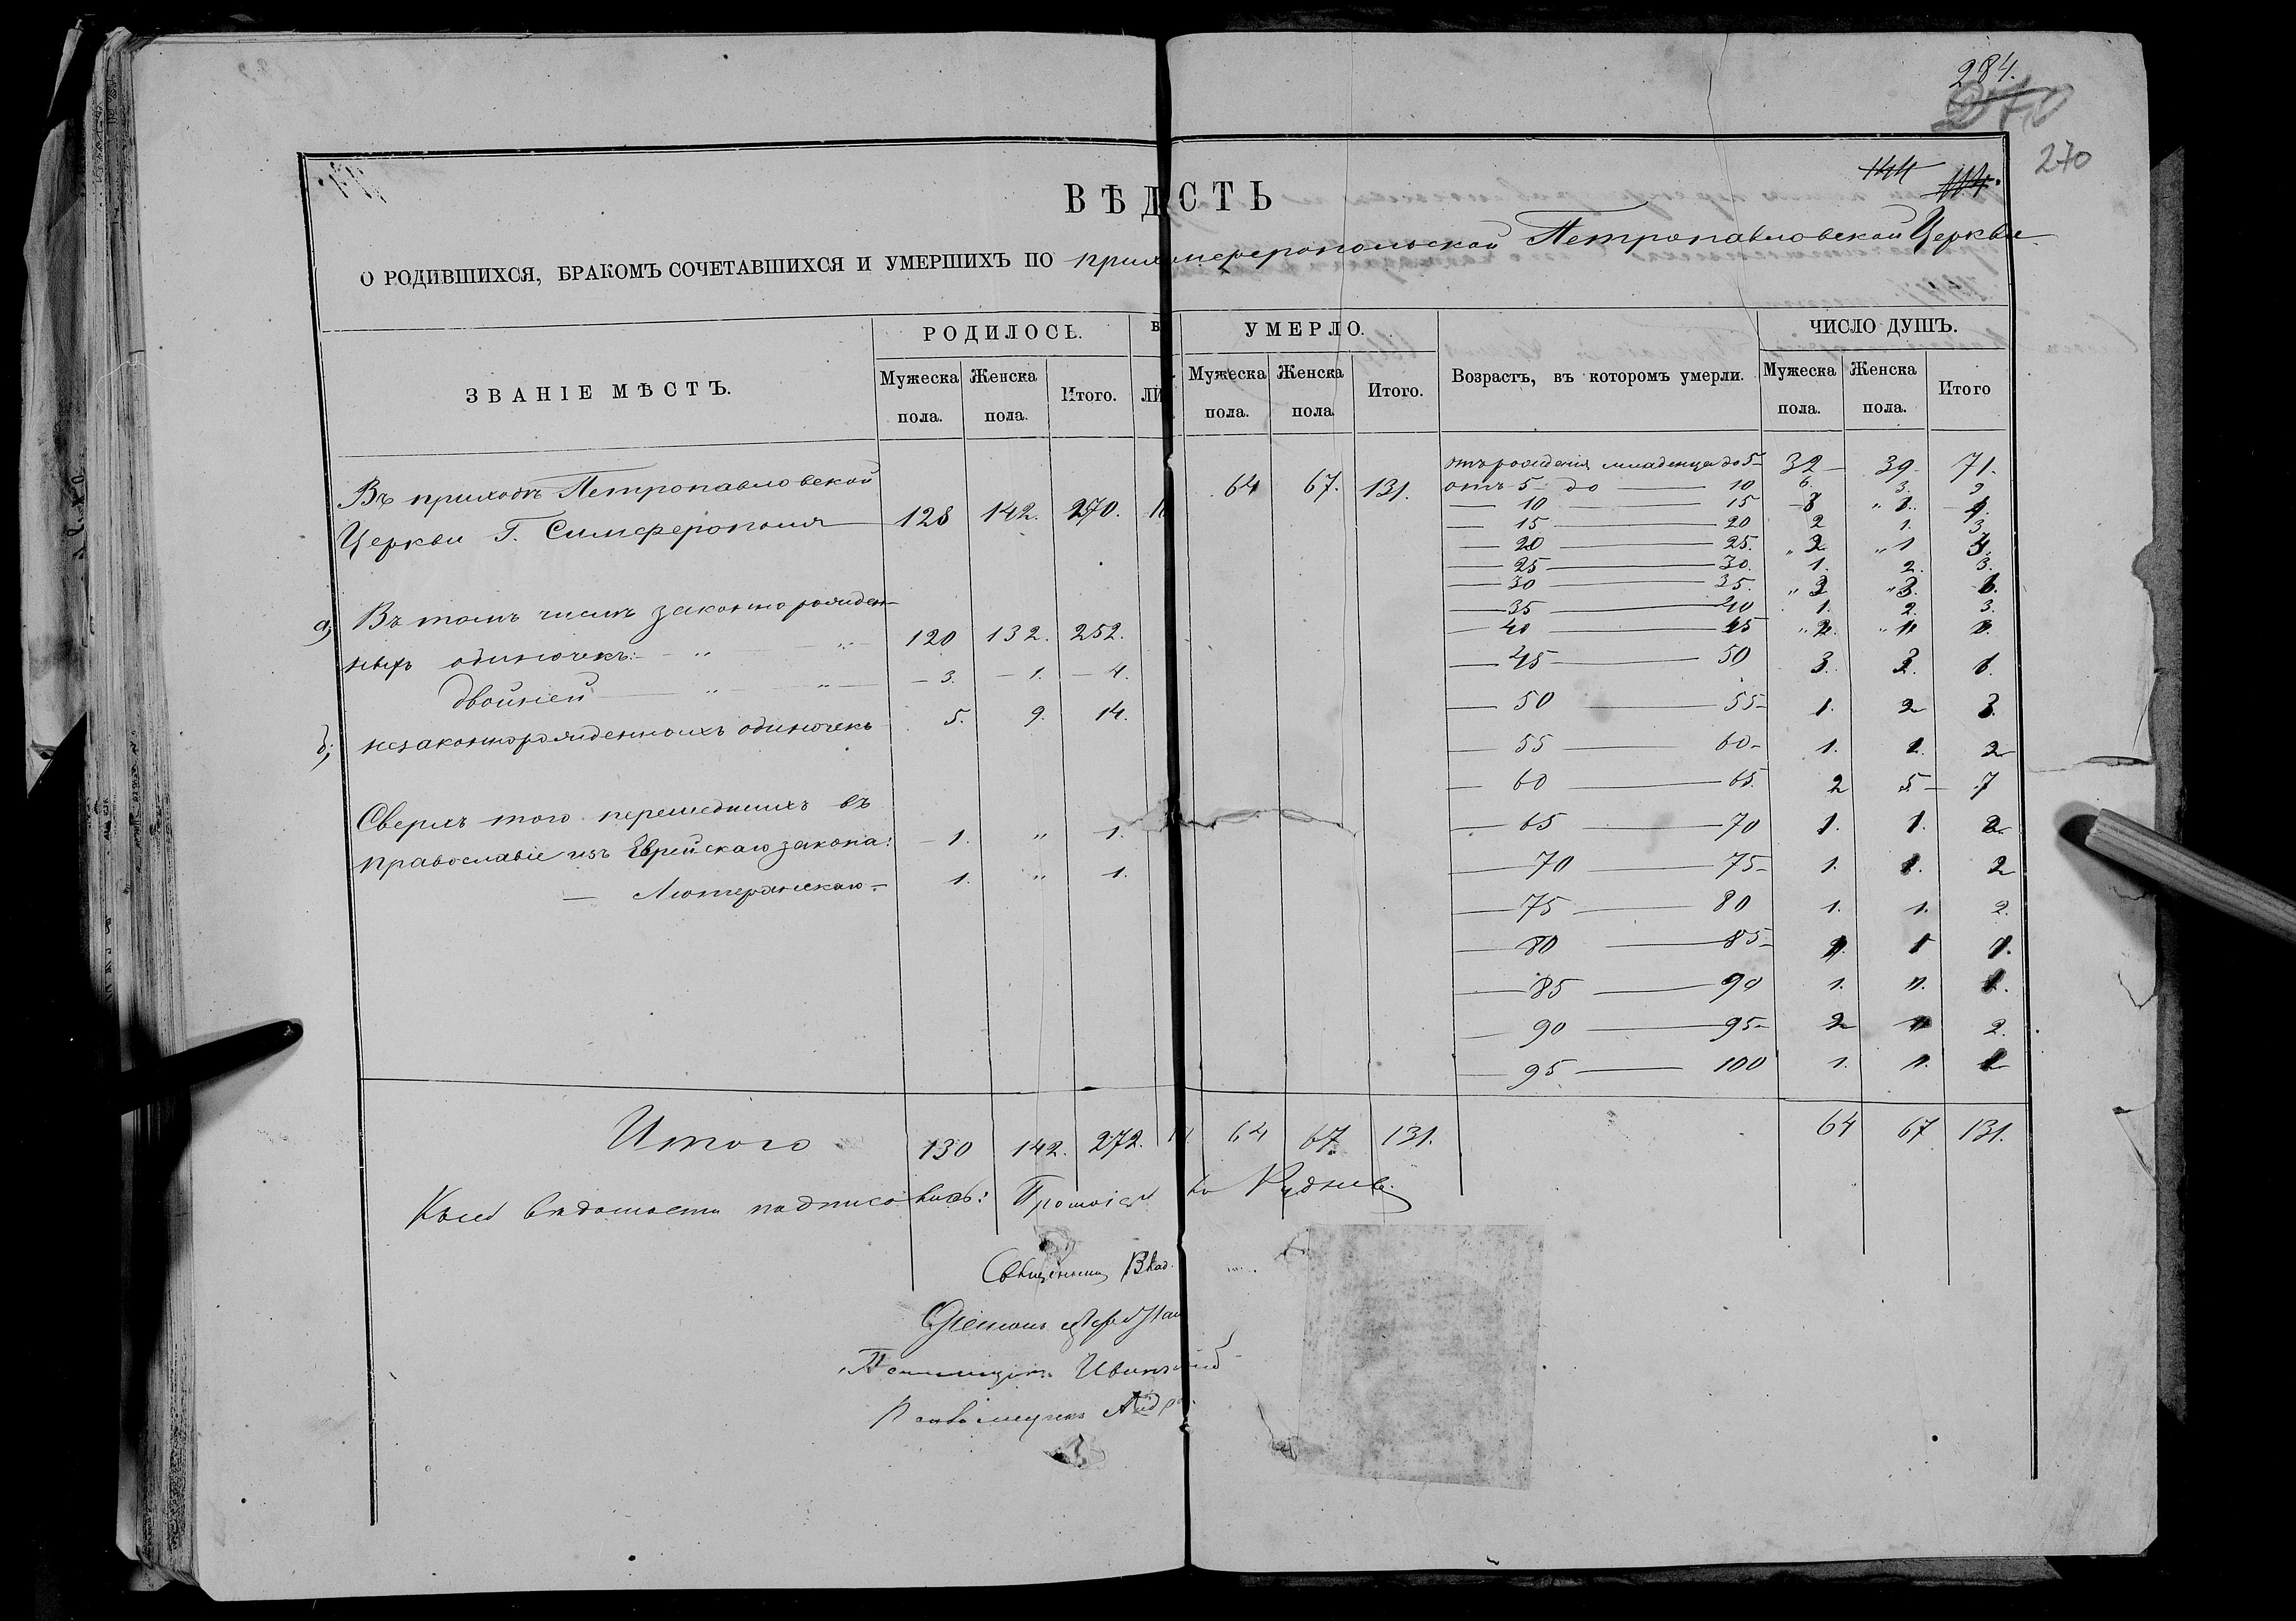 284.
270
270
144 114.
ВѢД СТЬ
О РОДИВШИХСЯ, БРАКОМЪ СОЧЕТАВШИХСЯ И УМЕРШИХЪ ПО прих мферопольской Петропавловской Церкви
ЗВАНІЕ МѢСТЪ.
РОДИЛОСЬ.
Мужеска пола.
Женска пола.
Итого.
ЛИ
УМЕРЛО.
Мужеска пола.
Женска пола
Итого.
Возрастъ, въ которомъ умерли.
ЧИСЛО ДУШЪ.
Мужеска пола.
Женска пола.
Итого
Въ приходѣ Петропавловской
Церкви Г. Симферополя 128 142. 270.
64 67. 131.
а) Въ томъ числѣ законнорожден-
ныхъ одиночекъ: 120 132. 252.
двойней 3. 1. 4.
б) незаконнорожденныхъ одиночекъ 5. 9. 14.
Сверхъ того перешедшихъ въ
православіе изъ Еврейскаго закона: 1. " 1.
— Лютеранскаго 1. " 1.
отъ рожденія младенца до 5 32 39 71.
отъ 5 до 10 6. 3. 9
10 15
15 20 2 1. 3
20 25.
25 30. 1. 2. 3.
30 35.
35 40 1. 2. 3.
40 45
45 50 3.
50 55 1. 2 3.
55 60 1. 1. 2
60 65. 2 5 7
65 70 1. 1. 2
70 75 1. 1. 2
75 80 1. 1. 2.
80 85
85 90 1. 1.
90 95 2 2.
95 100 1. 1. 2
Итого 130 142. 272.
64 67 131.
64 67 131.
Къ сей вѣдомости подписались: Протоіер Руднев
Священник Влад.
Діаконъ
Псаломщикъ Иван
Псаломщикъ Андр